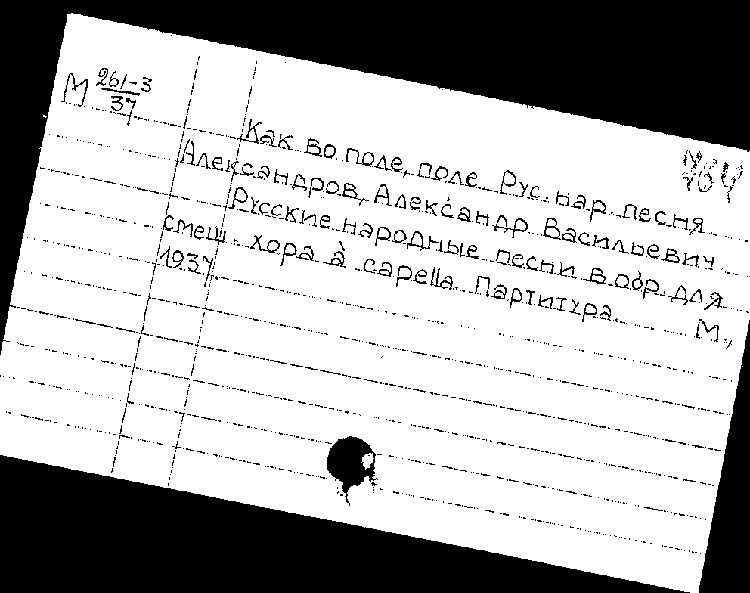 М 261-3
37
Как во поле, поле. Рус. нар. песня
Александров, Александр Васильевич
Русские народные песни в обр. для
смеш. хора à capella. Партитура. М.,
1937.